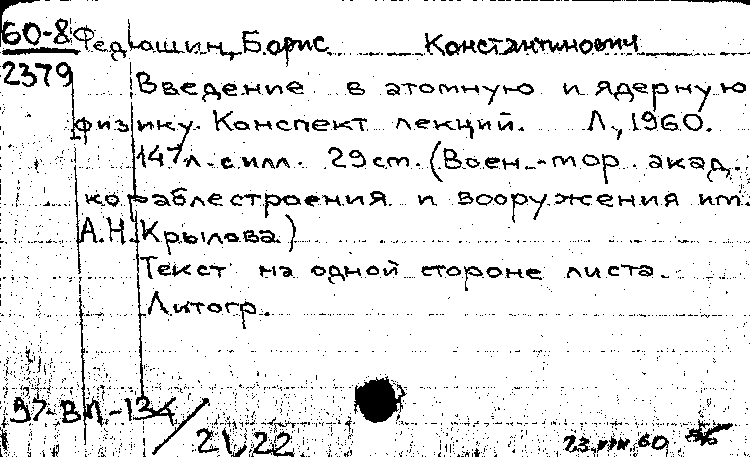 60-8 Федюшин, Борис Константинович
2379
Введение в атомную и ядерную
физику. Конспект лекций. Л., 1960.
147 л. с илл. 29 см. (Воен.-мор. акад.
кораблестроения и вооружения им.
А.Н. Крылова)
Текст на одной стороне листа.
Литогр.
97-ВЛ-134
21, 22
60